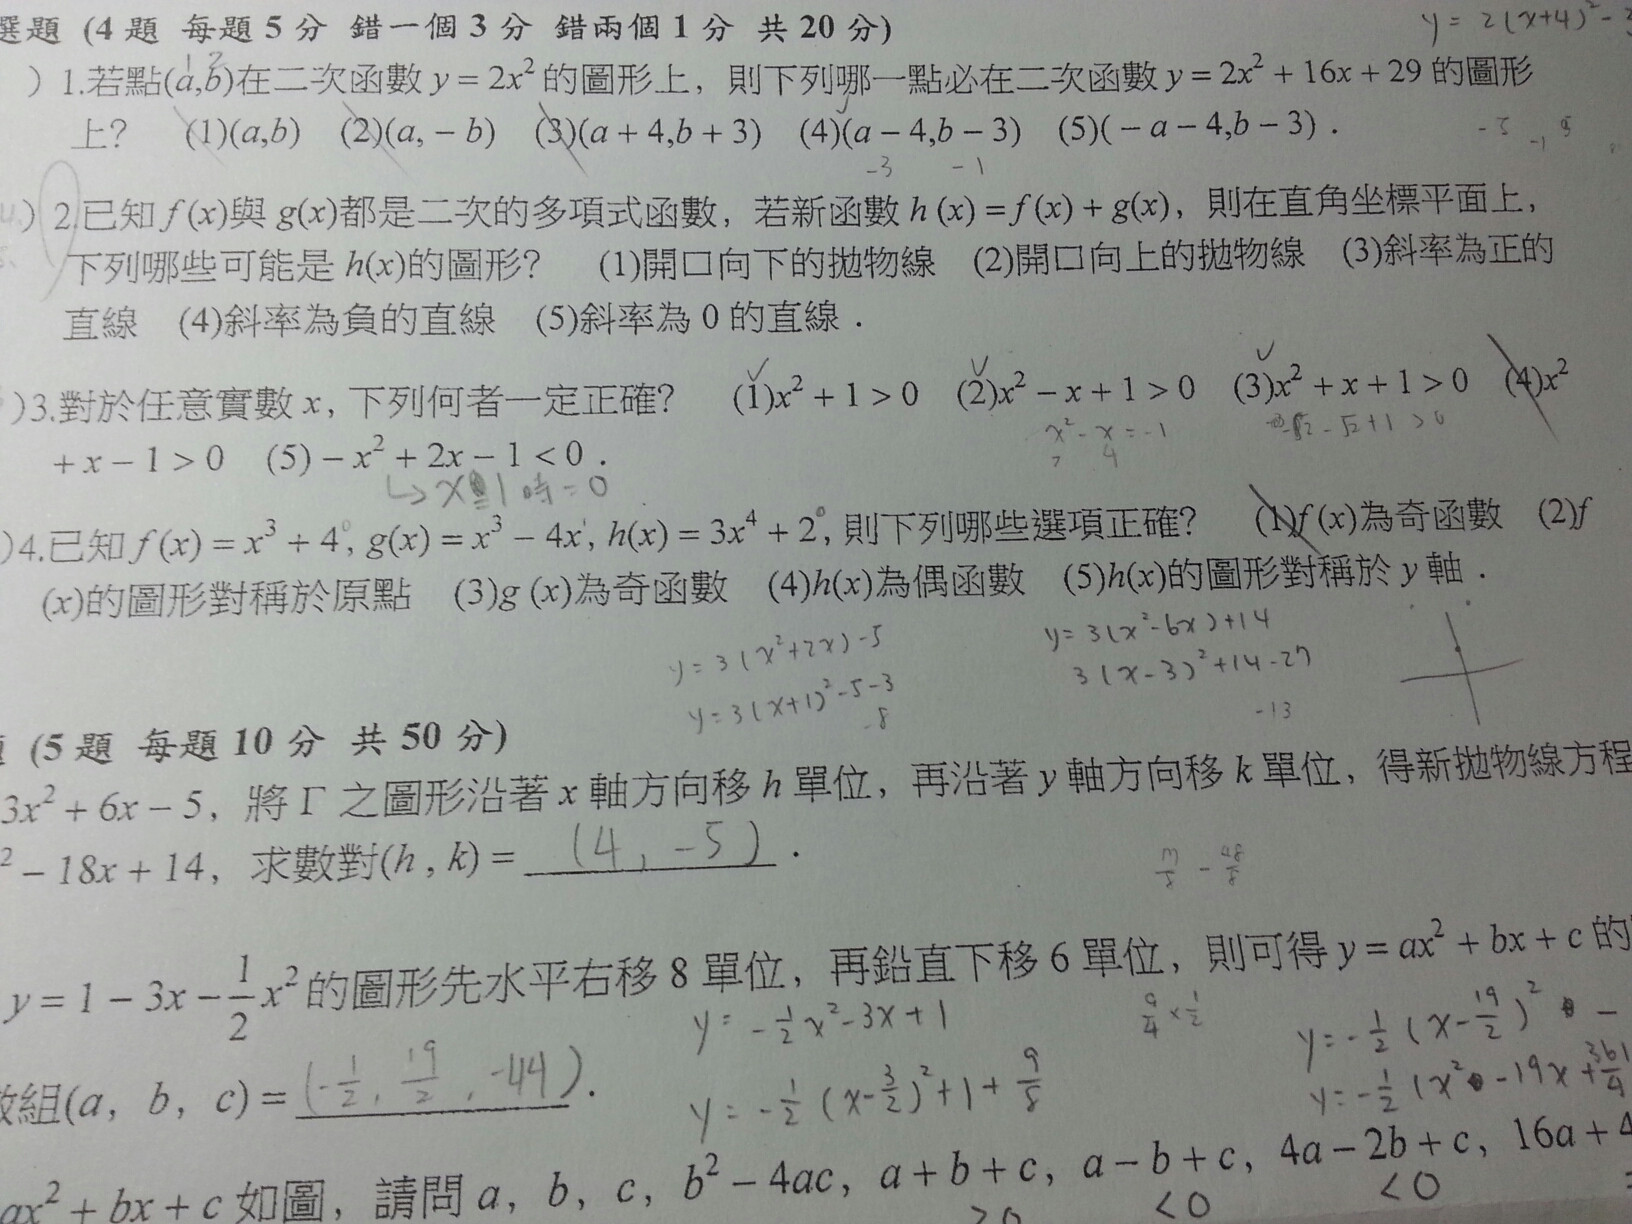 選題 (4 題 每題 5 分 錯一個 3 分 錯兩個 1 分 共 20 分)
y = 2(x+4)² -
1 2
) 1.若點(a,b)在二次函數 y = 2x² 的圖形上，則下列哪一點必在二次函數 y = 2x² + 16x + 29 的圖形
上？ (1)(a,b) (2)(a, − b) (3)(a + 4,b + 3) (4)(a − 4,b − 3) (5)( − a − 4,b − 3)．
-3 -1
) 2.已知 f (x)與 g(x)都是二次的多項式函數，若新函數 h (x) = f (x) + g(x)，則在直角坐標平面上，
下列哪些可能是 h(x)的圖形？ (1)開口向下的拋物線 (2)開口向上的拋物線 (3)斜率為正的
直線 (4)斜率為負的直線 (5)斜率為 0 的直線．
)3.對於任意實數 x，下列何者一定正確？ (1)x² + 1 > 0 (2)x² − x + 1 > 0 (3)x² + x + 1 > 0 (4)x²
x² - x = -1
+ x − 1 > 0 (5) − x² + 2x − 1 < 0．
1時 = 0
)4.已知 f (x) = x³ + 4, g(x) = x³ − 4x, h(x) = 3x⁴ + 2, 則下列哪些選項正確？ (1)f (x)為奇函數 (2)f
(x)的圖形對稱於原點 (3)g (x)為奇函數 (4)h(x)為偶函數 (5)h(x)的圖形對稱於 y 軸．
y = 3(x²+2x)-5 y = 3(x²-6x)+14
y = 3(x+1)²-5-3 3(x-3)²+14-27
-8 -13
(5 題 每題 10 分 共 50 分)
3x² + 6x − 5，將 Γ 之圖形沿著 x 軸方向移 h 單位，再沿著 y 軸方向移 k 單位，得新拋物線方程
² − 18x + 14，求數對(h , k) = (4, -5)．
y = 1 − 3x − 1/2 x² 的圖形先水平右移 8 單位，再鉛直下移 6 單位，則可得 y = ax² + bx + c 的
y = -1/2 x² - 3x + 1 9/4 × 1/2 y = -1/2 (x - 19/2)² -
數組(a，b，c) = (-1/2, 19/2, -44)．
y = -1/2 (x - 3/2)² + 1 + 9/8 y = -1/2 (x² - 19x + 361/4
ax² + bx + c 如圖，請問 a，b，c，b² − 4ac，a + b + c，a − b + c，4a − 2b + c，16a + 4
>0 <0 <0